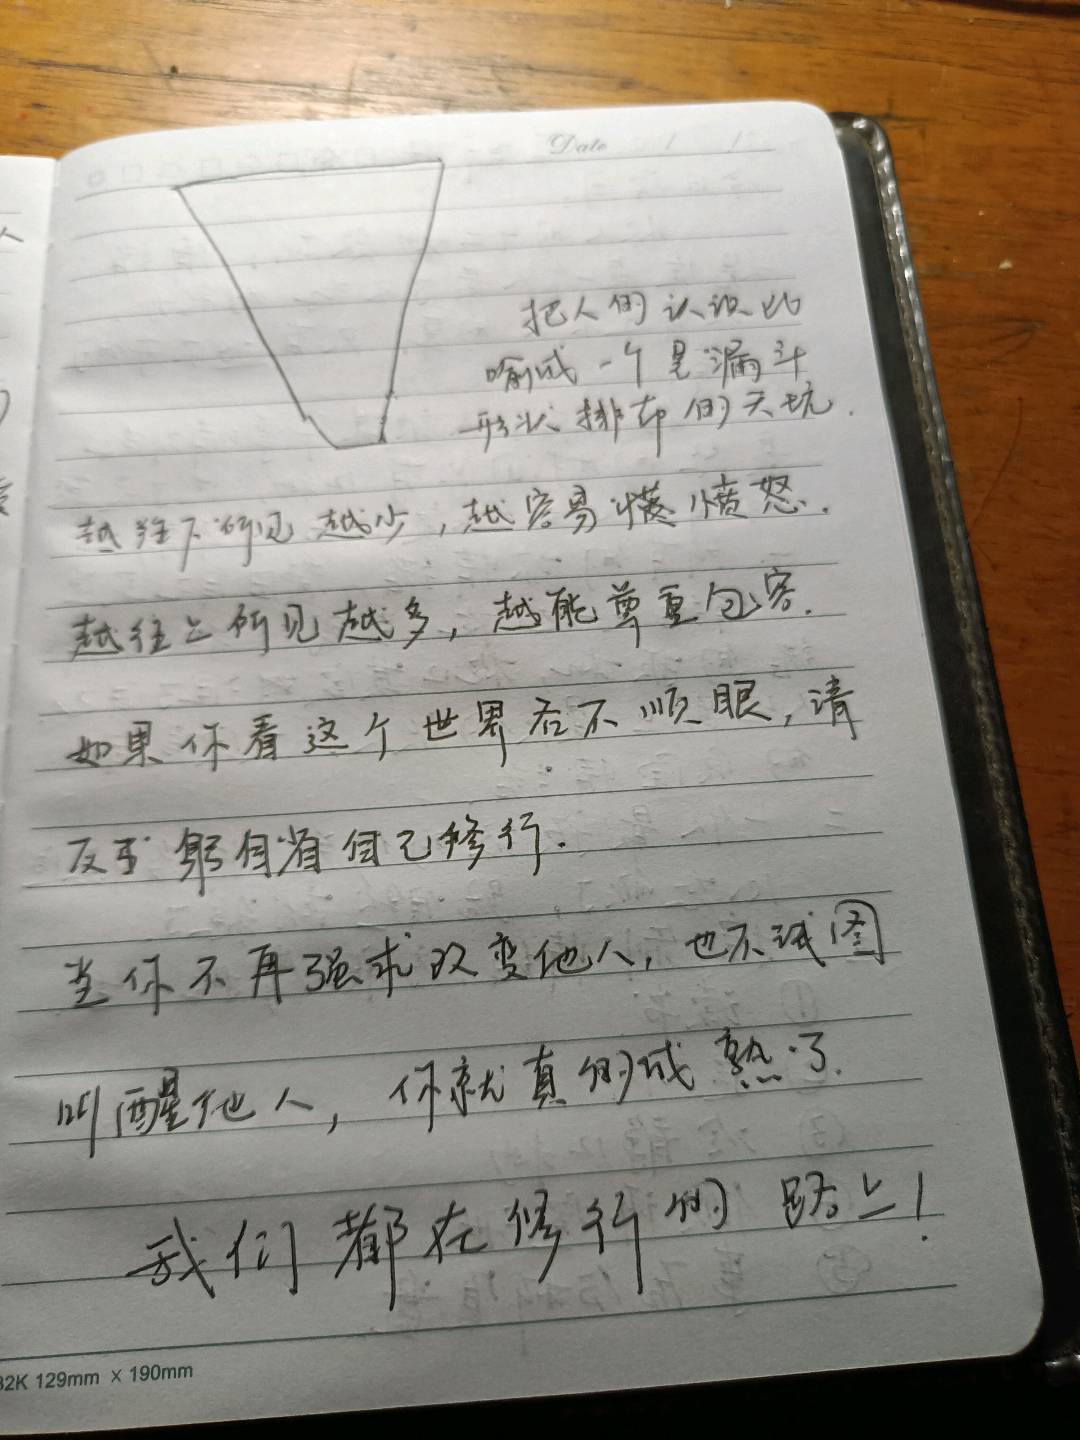 Date / /
把人的认识比
喻成一个是漏斗
形状排布的天坑.
越往下所见越少,越容易愤怒.
越往上所见越多,越能尊重包容.
如果你看这个世界若不顺眼,请
反求躬自省自己修行.
当你不再强求改变他人,也不试图
叫醒他人,你就真的成熟了.
我们都在修行的路上!
32K 129mm × 190mm